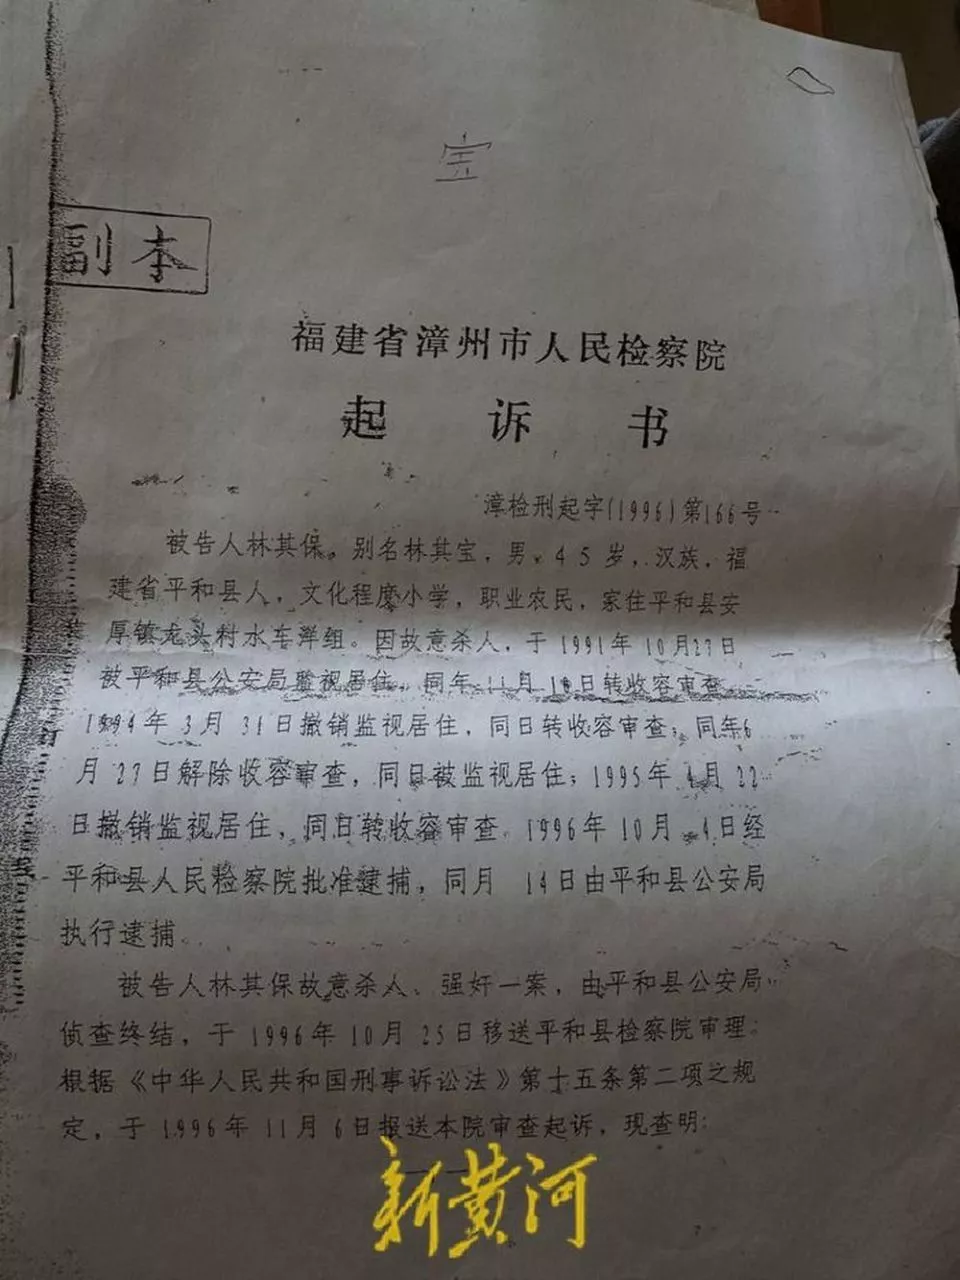 宝
副本
福建省漳州市人民检察院
起诉书
漳检刑起字(1996)第166号
被告人林其保。别名林其宝，男，45岁，汉族，福
建省平和县人，文化程度小学，职业农民，家住平和县安
厚镇龙头村水车洋组。因故意杀人，于1991年10月27日
被平和县公安局监视居住，同年11月18日转收容审查
1994年3月31日撤销监视居住，同日转收容审查；同年6
月27日解除收容审查，同日被监视居住；1995年 月22
日撤销监视居住，同日转收容审查 1996年10月 4日经
平和县人民检察院批准逮捕，同月 14日由平和县公安局
执行逮捕
被告人林其保故意杀人、强奸一案，由平和县公安局
侦查终结，于1996年10月25日移送平和县检察院审理。
根据《中华人民共和国刑事诉讼法》第十五条第二项之规
定，于1996年11月6日报送本院审查起诉，现查明：
新黄河